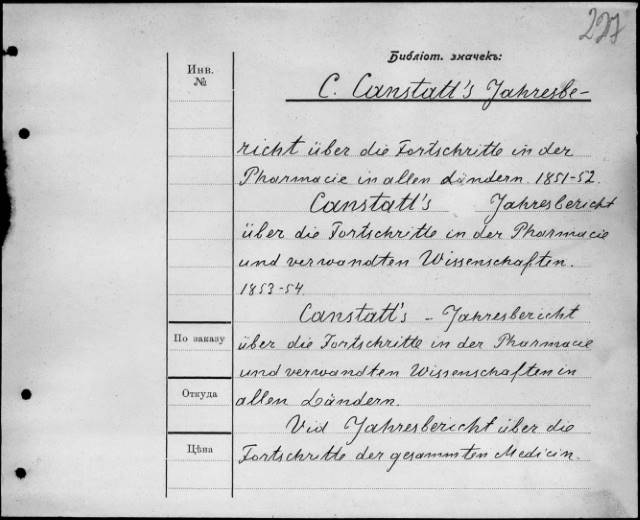 227
Библіот. значекъ:
Инв.
№
C. Canstatt's Jahresbe-
richt über die Fortschritte in der
Pharmacie in allen Ländern. 1851-52.
Canstatt's Jahresbericht
über die Fortschritte in der Pharmacie
und verwandten Wissenschaften.
1853-54.
Canstatt's - Jahresbericht
По заказу
über die Fortschritte in der Pharmacie
und verwandten Wissenschaften in
Откуда
allen Ländern.
Vid Jahresbericht über die
Цѣна
Fortschritte der gesammten Medicin.